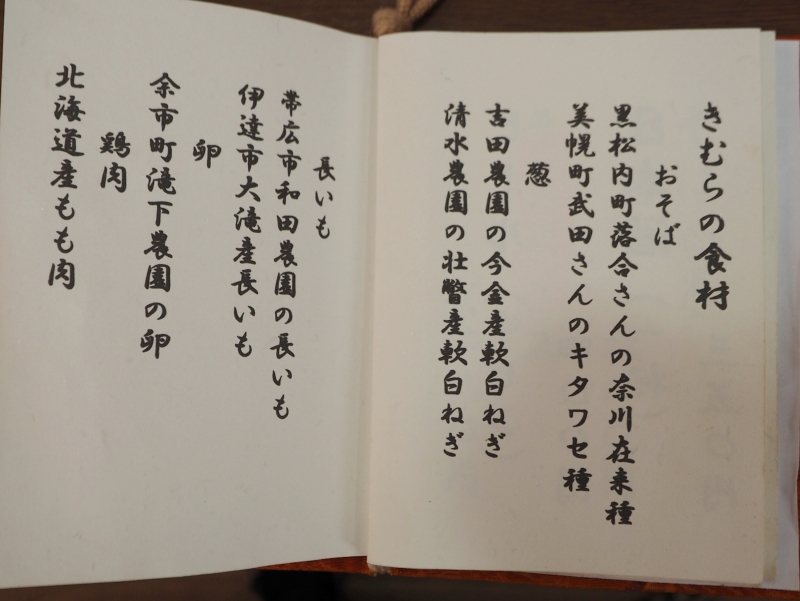 きむらの食材
おそば
黒松内町落合さんの奈川在来種
美幌町武田さんのキタワセ種
葱
吉田農園の今金産軟白ねぎ
清水農園の壮瞥産軟白ねぎ
長いも
帯広市和田農園の長いも
伊達市大滝産長いも
卵
余市町滝下農園の卵
鶏肉
北海道産もも肉